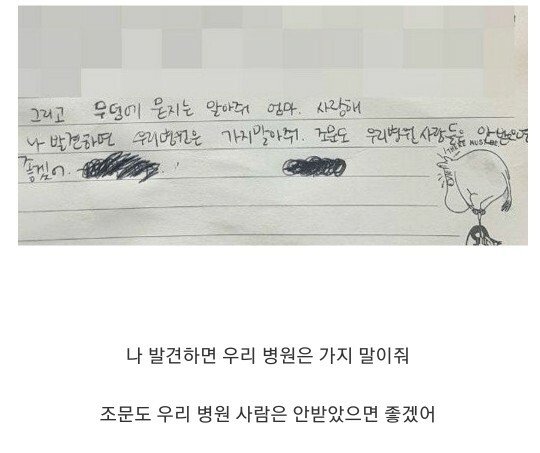 그리고 무덤에 묻지는 말아줘 엄마. 사랑해
나 발견하면 우리병원은 가지말아줘. 조문도 우리병원사람들은 안받으면
좋겠어.
나 발견하면 우리 병원은 가지 말이줘
조문도 우리 병원 사람은 안받았으면 좋겠어